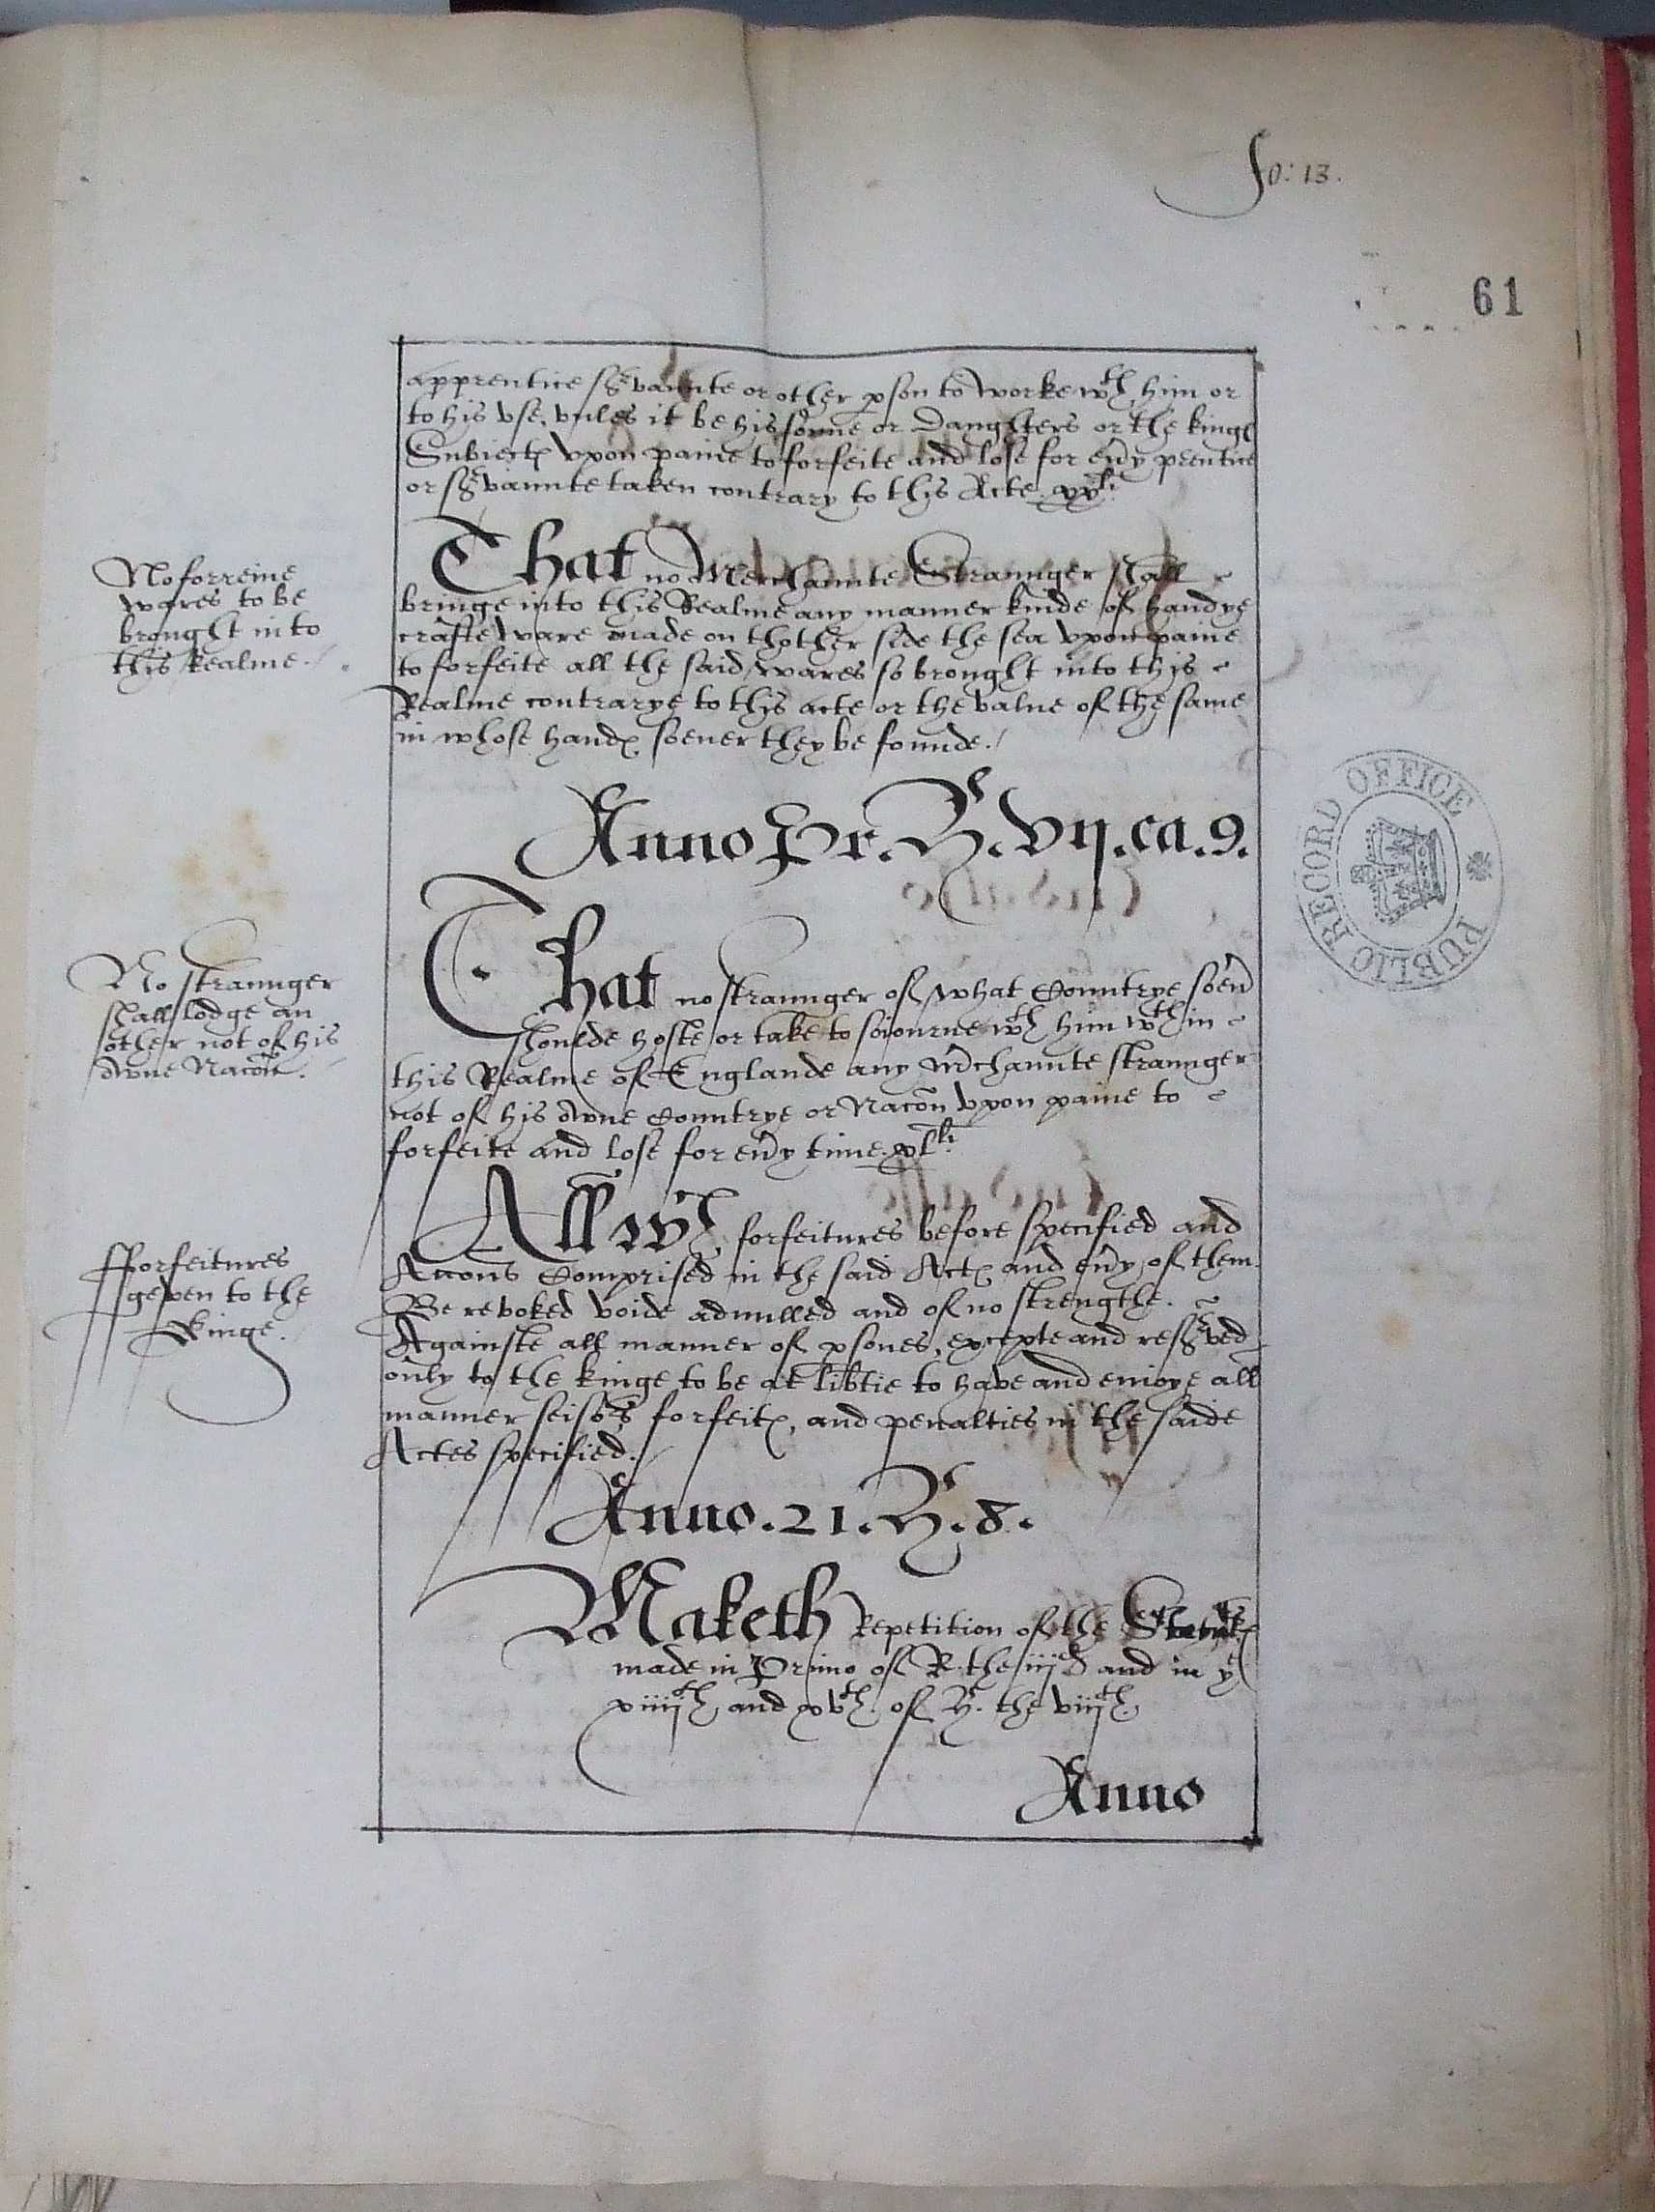 fo: 13.
61
apprentice s̃rvaunte or other ꝑson to worke wth him or
to his vse, vnles it be his sonne or Daughters or the kingꝭ
Subiectꝭ vpon paine to forfeite and lose for eu̾y prentice
or s̃rvaunte taken contrary to this Acte. xxli.
No forreine
wares to be
brought into
this Realme./
That no Merchaunte Straunger shall
bringe into this Realme any manner kinde of handye
crafte ware made on thother side the sea vpon paine
to forfeite all the said wares so brought into this
Realme contrarye to this acte or the value of the same
in whose handꝭ soeuer they be founde./
Anno Pr. H. vij. ca. 9.
No straunger
shall lodge an
other not of his
owne Nac̃on.
That no straunger of what Countrye soeu̾
shoulde hoste or take to soiourne wth him wthin
this Realme of Englande any m̃rchaunte straunger
not of his owne Countrye or Nac̃on vpon paine to
forfeite and lose for eu̾y time. xlli.
Fforfeitures
geven to the
Kinge.
All wch forfeitures before specified and
Acc̃ons Comprised in the said Actꝭ and eu̾y of them
Be revoked voide adnulled and of no strengthe.
Againste all manner of ꝑsones, excepte and res̃rved
only to the kinge to be at lib̃tie to have and enioye all
manner seisors, forfeitꝭ, and penalties in the saide
Actes specified./
Anno. 21. H. 8.
Maketh Repetition of the Statutꝭ
made in Primo of R. the iijd and in ye
xiiijth and xvth of H. the viijth.
Anno
PUBLIC RECORD OFFICE